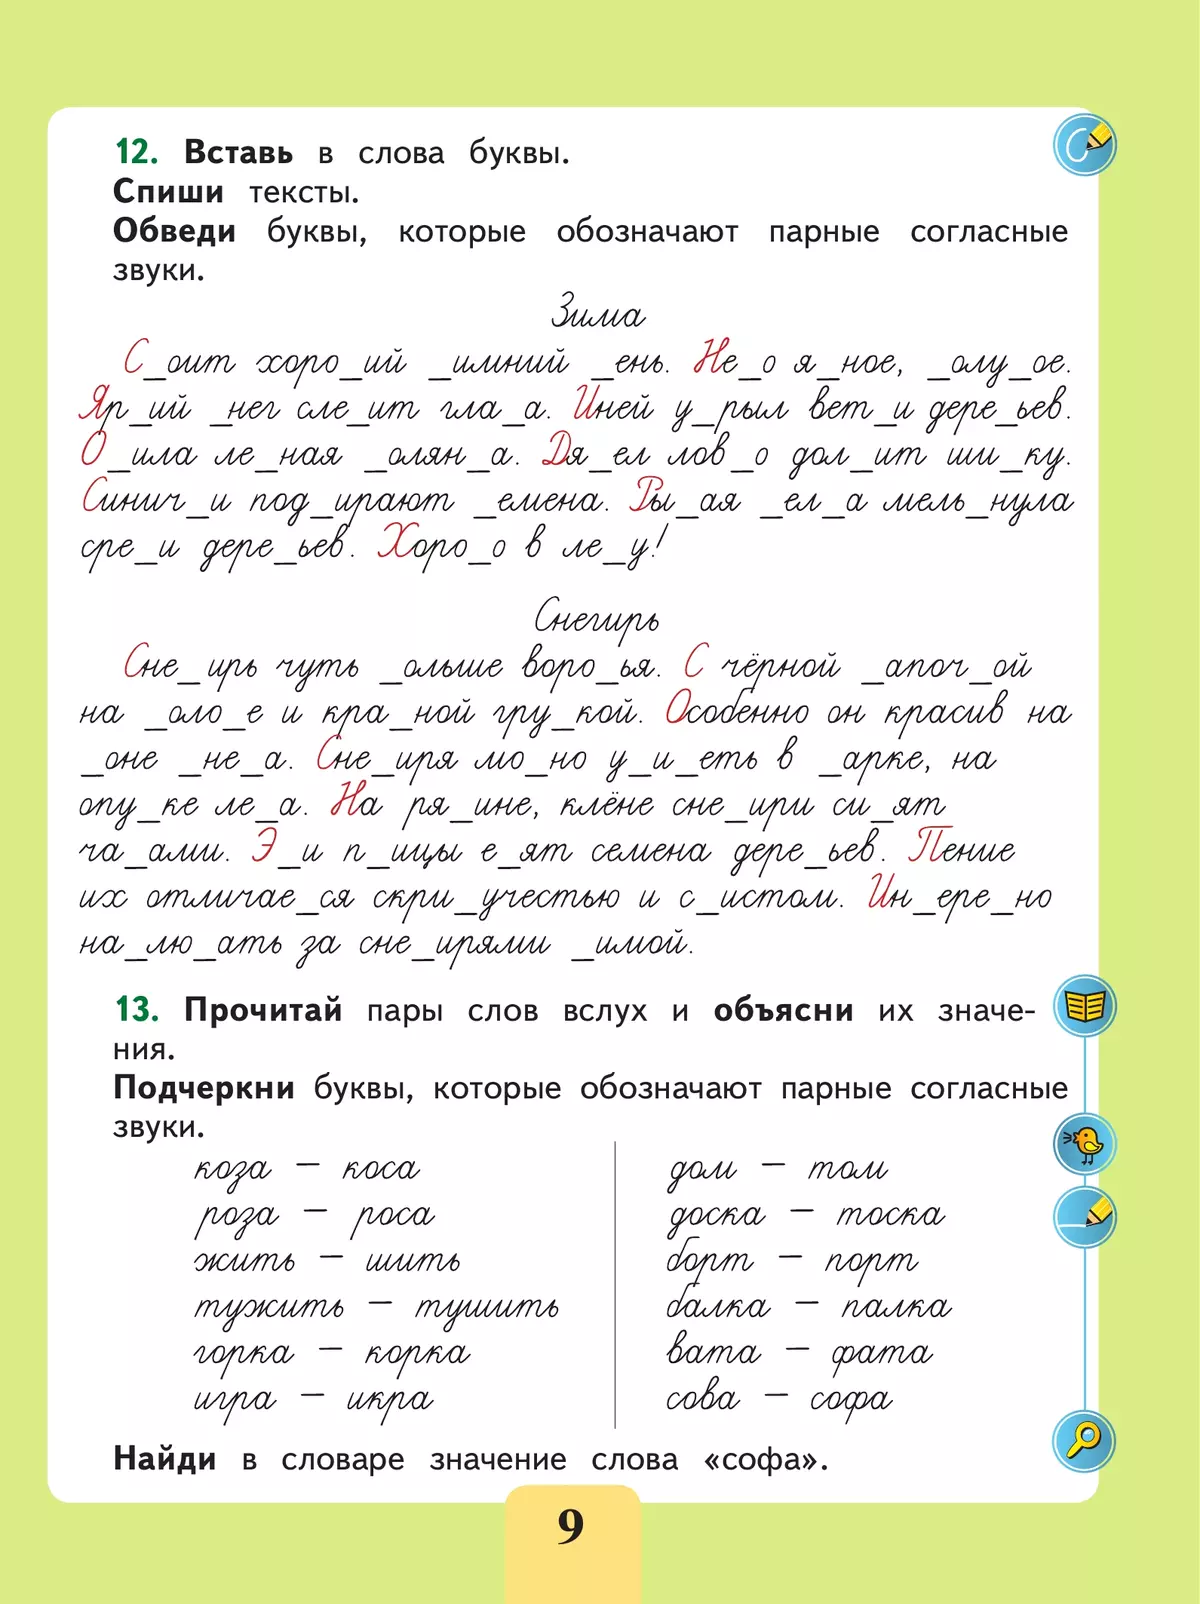 12. Вставь в слова буквы.
Спиши тексты.
Обведи буквы, которые обозначают парные согласные
звуки.
Зима
С_оит хоро_ий _имний _ень. Не_о я_ное, _олу_ое.
Яр_ий _нег сле_ит гла_а. Иней у_рыл вет_и дере_ьев.
О_ила ле_ная _олян_а. Дя_ел лов_о дол_ит ши_ку.
Синич_и под_ирают _емена. Ры_ая _ел_а мель_нула
сре_и дере_ьев. Хоро_о в ле_у!
Снегирь
Сне_ирь чуть _ольше воро_ья. С чёрной _апоч_ой
на _оло_е и кра_ной гру_кой. Особенно он красив на
_оне _не_а. Сне_иря мо_но у_и_еть в _арке, на
опу_ке ле_а. На ря_ине, клёне сне_ири си_ят
ча_ами. Э_и п_ицы е_ят семена дере_ьев. Пение
их отличае_ся скри_учестью и с_истом. Ин_ере_но
на_лю_ать за сне_ирями _имой.
13. Прочитай пары слов вслух и объясни их значе-
ния.
Подчеркни буквы, которые обозначают парные согласные
звуки.
коза – коса
роза – роса
жить – шить
тужить – тушить
горка – корка
игра – икра
дом – том
доска – тоска
борт – порт
балка – палка
вата – фата
сова – софа
Найди в словаре значение слова «софа».
9